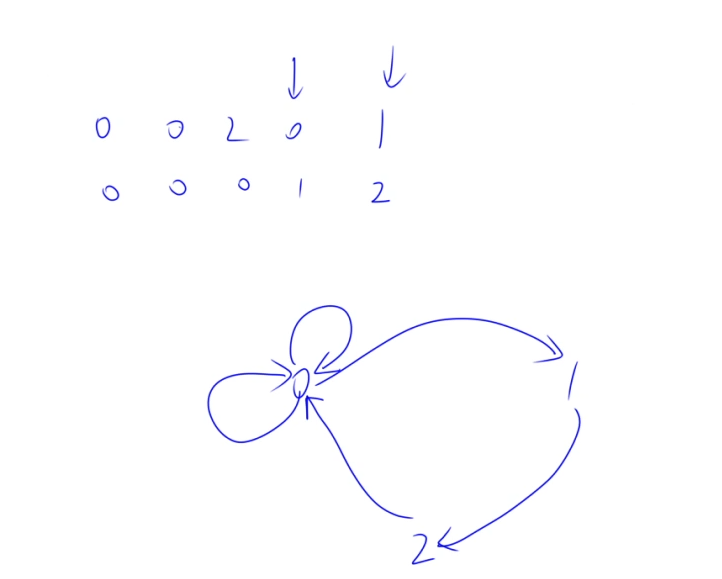 0 0 2 0 1
0 0 0 1 2
0
1
2